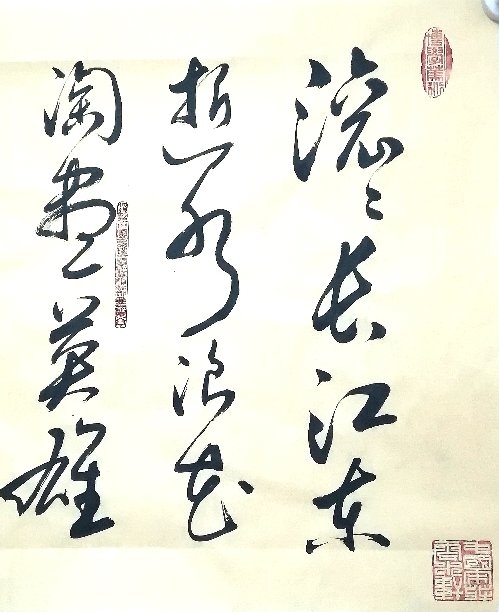 滚〻长江东
逝水浪花
淘尽英雄